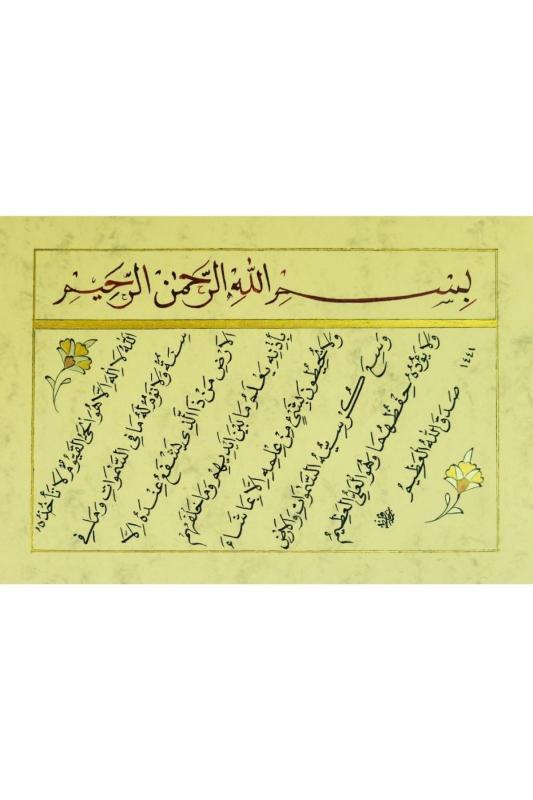 بِسْمِ اللّٰهِ الرَّحْمٰنِ الرَّحِيمِ
اَللّٰهُ لَا اِلٰهَ اِلَّا هُوَ الْحَيُّ الْقَيُّومُ لَا تَأْخُذُهُ
سِنَةٌ وَلَا نَوْمٌ لَهُ مَا فِي السَّمٰوَاتِ وَمَا فِي
الْاَرْضِ مَنْ ذَا الَّذِي يَشْفَعُ عِنْدَهُ اِلَّا
بِاِذْنِهِ يَعْلَمُ مَا بَيْنَ اَيْدِيهِمْ وَمَا خَلْفَهُمْ
وَلَا يُحِيطُونَ بِشَيْءٍ مِنْ عِلْمِهِ اِلَّا بِمَا شَاءَ
وَسِعَ كُرْسِيُّهُ السَّمٰوَاتِ وَالْاَرْضَ
وَلَا يَؤُدُهُ حِفْظُهُمَا وَهُوَ الْعَلِيُّ الْعَظِيمُ
صَدَقَ اللّٰهُ الْعَظِيمُ
١٤٤١